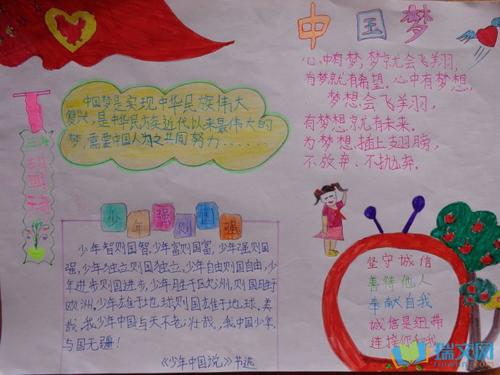 中国梦
心中有梦,梦就会飞翔,
为梦就有希望。心中有梦想,
梦想会飞翔,
有梦想,就有未来。
为梦想插上翅膀,
不放弃、不抛弃。
中国梦是实现中华民族伟大
复兴,是中华民族近代以来最伟大的
梦,需要中国人为之共同努力……
少年强则国强
少年智则国智,少年富则国富,少年强则国
强,少年独立则国独立,少年自由则国自由,少
年进步则国进步,少年胜于欧洲,则国胜于
欧洲,少年雄于地球,则国雄于地球。美
哉,我少年中国与天不老,壮哉,我中国少年
与国无疆!
《少年中国说》节选
坚守诚信
善待他人
奉献自我
诚信是纽带
连接你和我
瑞文网